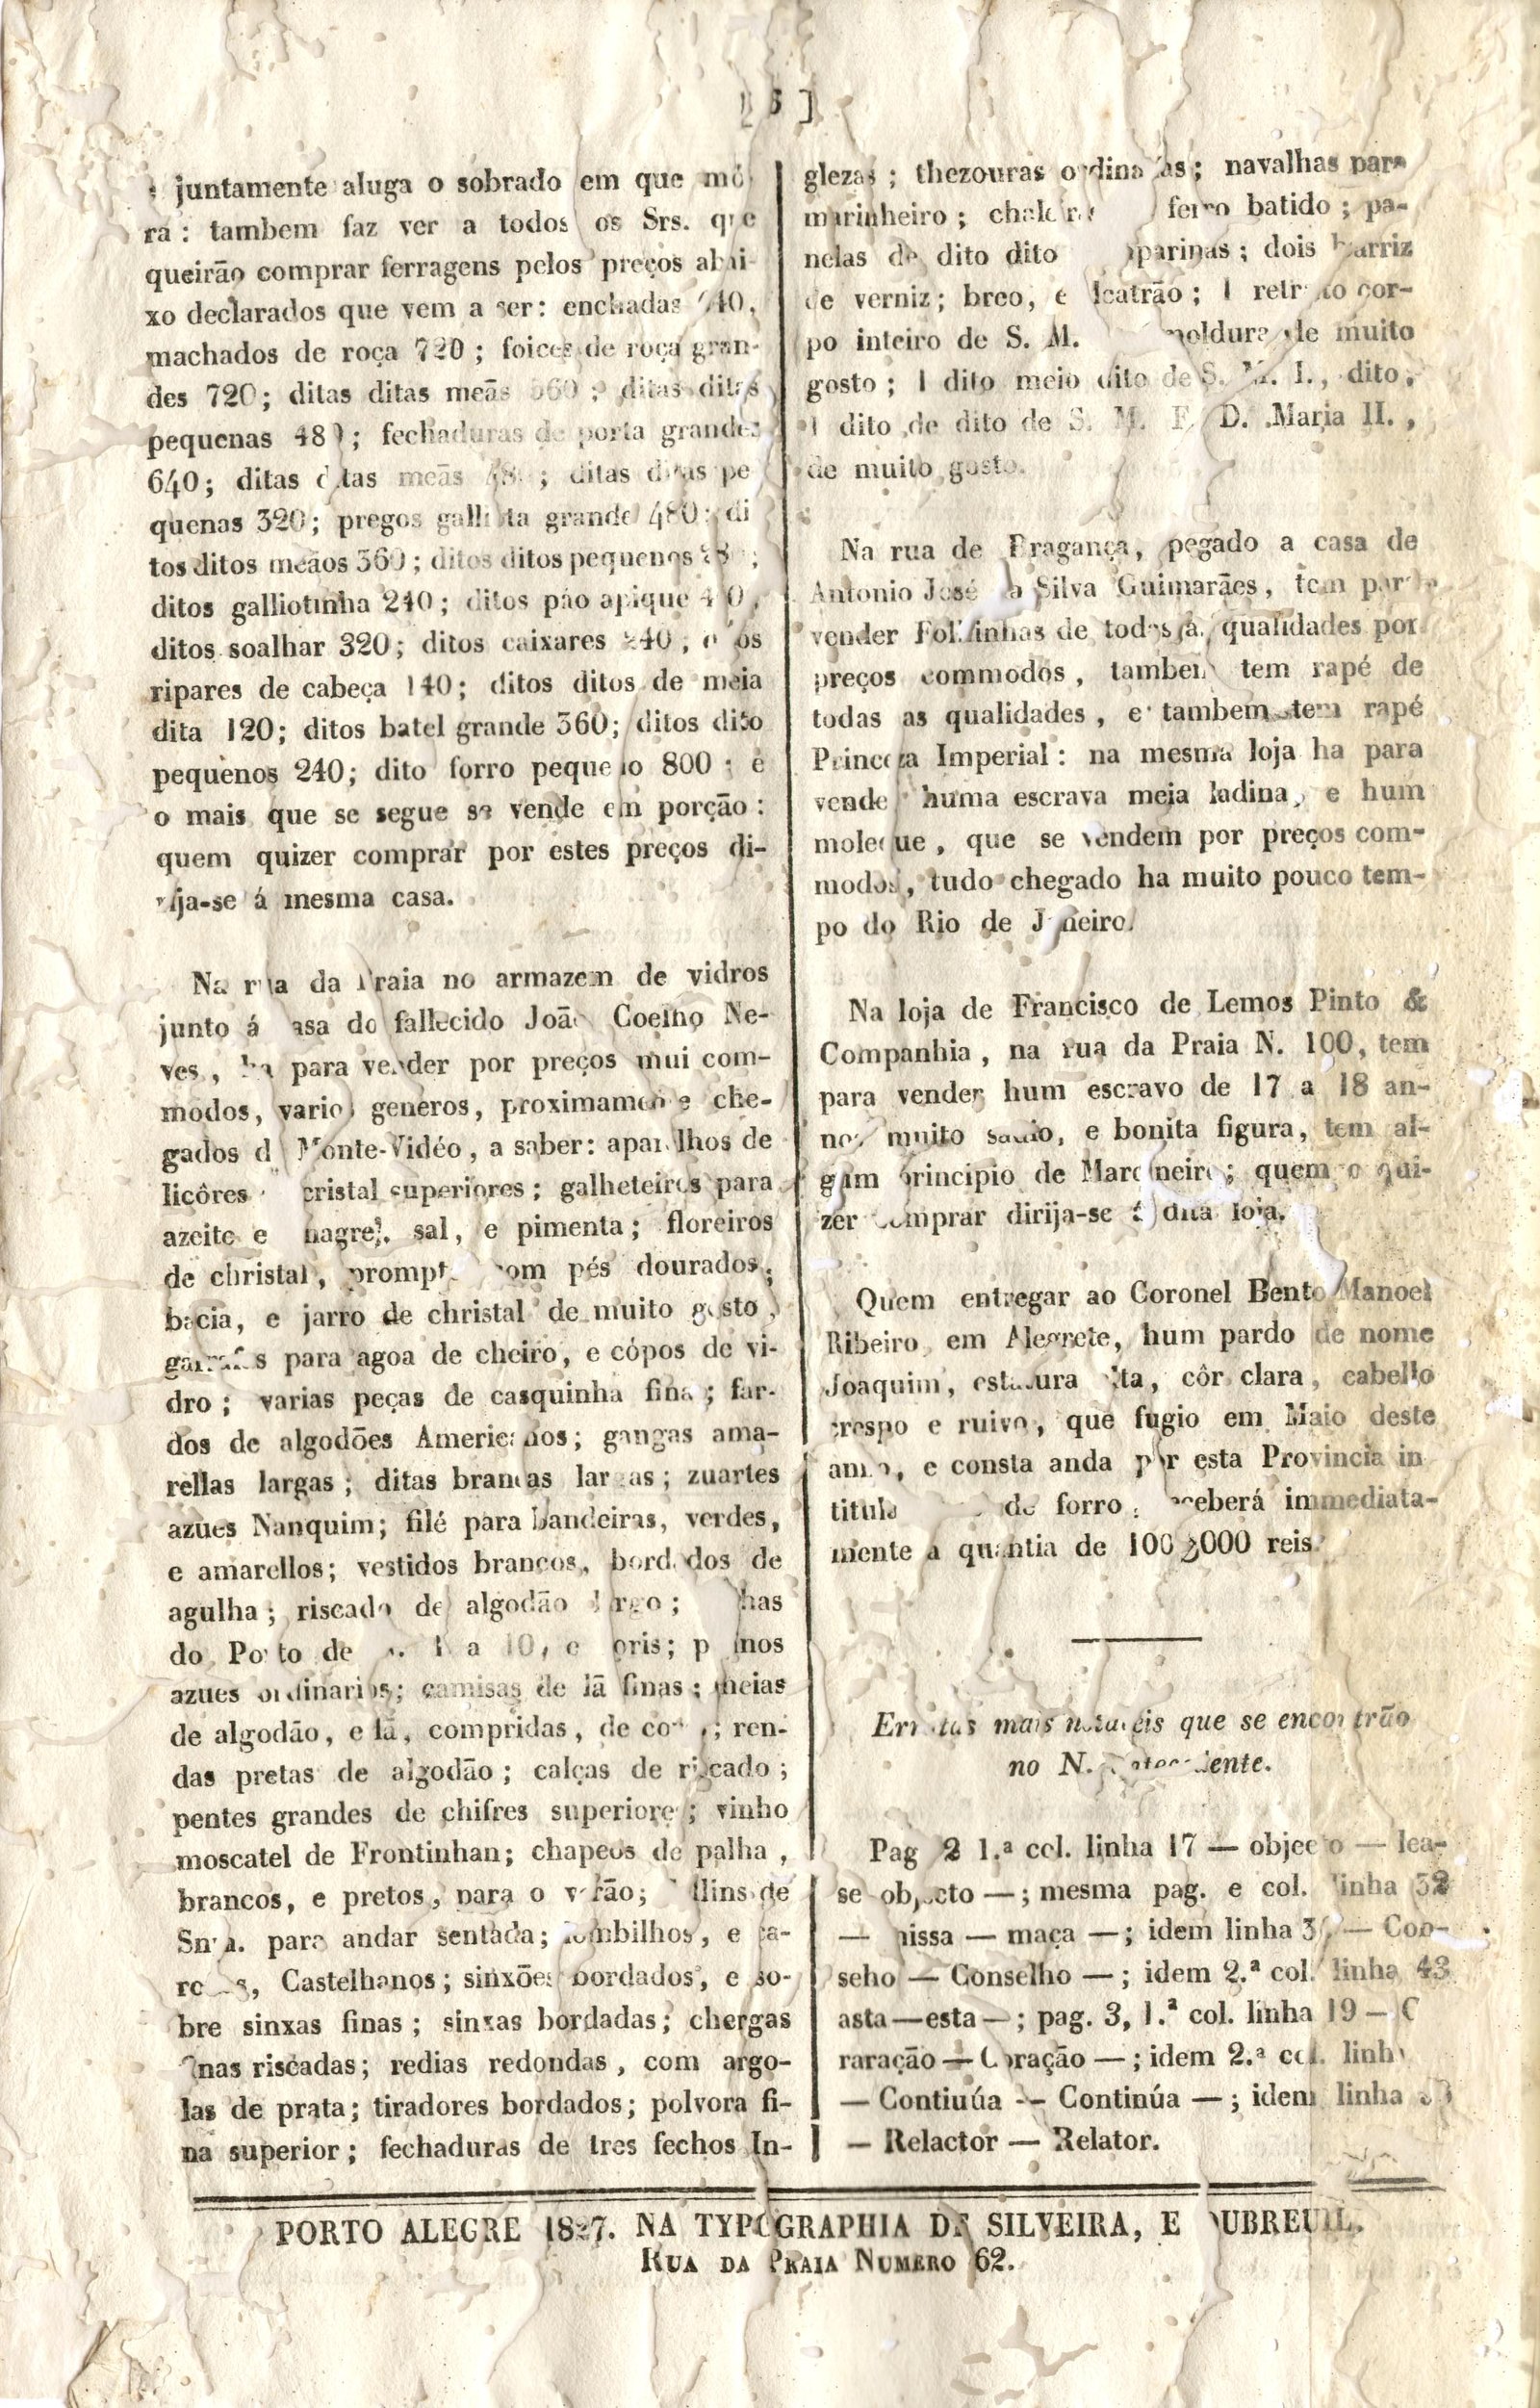 juntamente aluga o sobrado em que mó-
ra: tambem faz ver a todos os Srs. que
queirão comprar ferragens pelos preços abai-
xo declarados que vem a ser: enchadas
machados de roça 720; foices de roça gran-
des 720; ditas ditas meãs 560; ditas ditas
pequenas 480; fechaduras de porta grandes
640; ditas ditas meãs ; ditas ditas pe
quenas 320; pregos gallista grande 480; di
tos ditos meãos 360; ditos ditos pequenos
ditos galliotinha 240; ditos páo apique
ditos soalhar 320; ditos caixares 240; ditos
ripares de cabeça 140; ditos ditos de meia
dita 120; ditos batel grande 360; ditos dito
pequenos 240; dito forro pequeno 800; e
o mais que se segue se vende em porção:
quem quizer comprar por estes preços di-
rija-se á mesma casa.
Na rua da Praia no armazem de vidros
junto á casa do fallecido João Coelho Ne-
ves, ha para vender por preços mui com-
modos, varios generos, proximamente che-
gados de Monte-Vidéo, a saber: aparelhos de
licôres cristal superiores; galheteiros para
azeite e vinagre, sal, e pimenta; floreiros
de christal, promptos com pés dourados;
bacia, e jarro de christal de muito gosto,
garrafas para agoa de cheiro, e cópos de vi-
dro; varias peças de casquinha fina; far-
dos de algodões Americanos; gangas ama-
rellas largas; ditas brancas largas; zuartes
azues Nanquim; filé para bandeiras, verdes,
e amarellos; vestidos brancos, bordados de
agulha; riscado de algodão largo; linhas
do Porto de a 10, e oris; panos
azues ordinarios; camisas de lã finas; meias
de algodão, e lã, compridas, de cor; ren-
das pretas de algodão; calças de riscado;
pentes grandes de chifres superiores; vinho
moscatel de Frontinhan; chapeos de palha,
brancos, e pretos, para o verão; sillins de
Snra. para andar sentada; lombilhos, e ca-
ronas, Castelhanos; sinxões bordados, e so-
bre sinxas finas; sinxas bordadas; chergas
finas riscadas; redias redondas, com argo-
las de prata; tiradores bordados; polvora fi-
na superior; fechaduras de tres fechos In-
glezas; thezouras ordinarias; navalhas para
marinheiro; chaleiras ferro batido; pa-
nelas de dito dito ; dois barriz
de verniz; breo, e alcatrão; 1 retrato cor-
po inteiro de S. M. moldura de muito
gosto; 1 dito meio dito de S. M. I., dito,
1 dito de dito de S. M. F. D. Maria II.,
de muito gosto.
Na rua de Bragança, pegado a casa de
Antonio José da Silva Guimarães, tem para
vender Folhinhas de todas as qualidades por
preços commodos, tambem tem rapé de
todas as qualidades, e tambem tem rapé
Princeza Imperial: na mesma loja ha para
vender huma escrava meia ladina, e hum
moleque, que se vendem por preços com-
modos, tudo chegado ha muito pouco tem-
po do Rio de Janeiro.
Na loja de Francisco de Lemos Pinto &
Companhia, na rua da Praia N. 100, tem
para vender hum escravo de 17 a 18 an-
nos muito sadio, e bonita figura, tem al-
gum principio de Marcineiro; quem o qui-
zer comprar dirija-se á dita loja.
Quem entregar ao Coronel Bento Manoel
Ribeiro, em Alegrete, hum pardo de nome
Joaquim, estatura alta, côr clara, cabello
crespo e ruivo, que fugio em Maio deste
anno, e consta anda por esta Provincia in
titulando-se de forro, receberá immediata-
mente a quantia de 100$000 reis.
Erratas mais notaveis que se encontrão
no N. antecedente.
Pag 2 1.ª col. linha 17 — objecto — lea-
se objecto —; mesma pag. e col. linha 32
— missa — maça —; idem linha — Con-
seho — Conselho —; idem 2.ª col. linha 43
asta — esta —; pag. 3, 1.ª col. linha 19 —
raração — Coração —; idem 2.ª col. linha
— Contiuúa — Continúa —; idem linha
— Relactor — Relator.
PORTO ALEGRE 1827. NA TYPOGRAPHIA DE SILVEIRA, E DUBREUIL.
RUA DA PRAIA NUMERO 62.